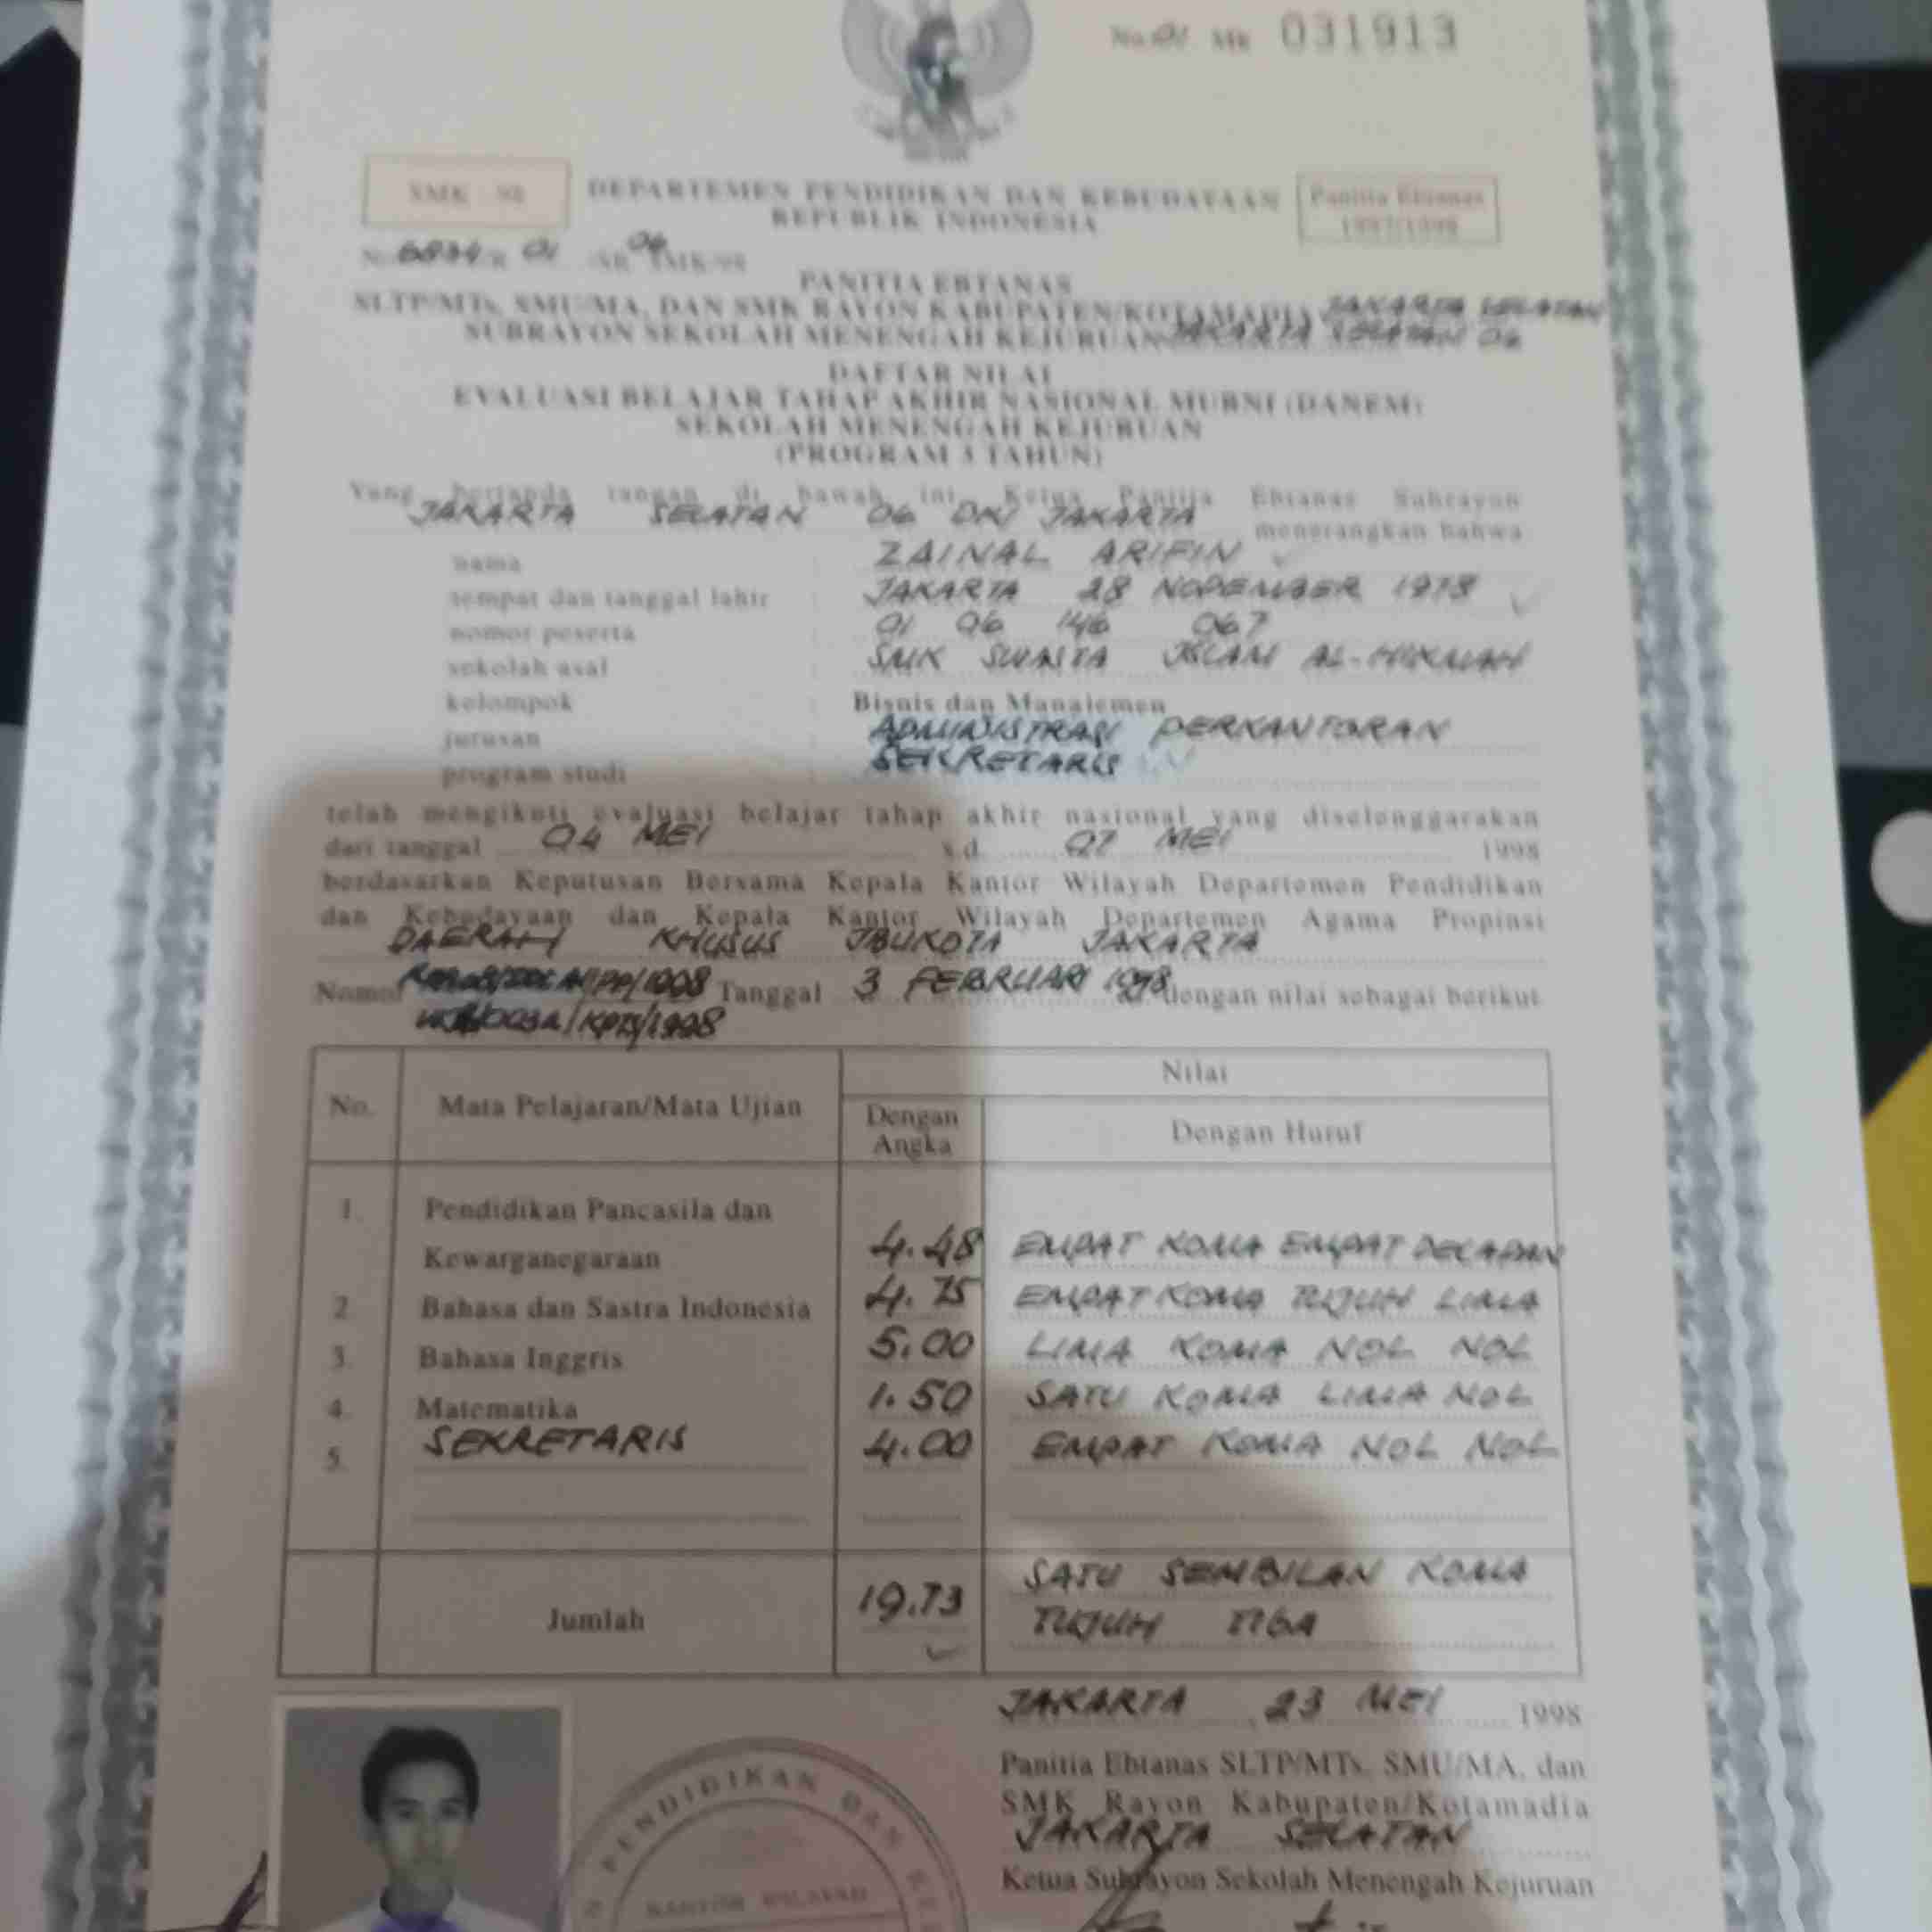 No. 01 Mk 031913
SMK - 98
DEPARTEMEN PENDIDIKAN DAN KEBUDAYAAN
REPUBLIK INDONESIA
Panitia Ebtanas
1997/1998
01 04 SMK/98
PANITIA EBTANAS
SLTP/MTs, SMU/MA, DAN SMK RAYON KABUPATEN/KOTAMADIA JAKARTA SELATAN
SUBRAYON SEKOLAH MENENGAH KEJURUAN JAKARTA SELATAN 06
DAFTAR NILAI
EVALUASI BELAJAR TAHAP AKHIR NASIONAL MURNI (DANEM)
SEKOLAH MENENGAH KEJURUAN
(PROGRAM 3 TAHUN)
Yang bertanda tangan di bawah ini, Ketua Panitia Ebtanas Subrayon
JAKARTA SELATAN 06 DKI JAKARTA menerangkan bahwa
nama : ZAINAL ARIFIN
tempat dan tanggal lahir : JAKARTA 28 NOPEMBER 1978
nomor peserta : 01 06 146 067
sekolah asal : SMK SWASTA ISLAM AL-HIKMAH
kelompok : Bisnis dan Manajemen
jurusan : ADMINISTRASI PERKANTORAN
program studi : SEKRETARIS
telah mengikuti evaluasi belajar tahap akhir nasional yang diselenggarakan
dari tanggal 04 MEI s.d. 07 MEI 1998
berdasarkan Keputusan Bersama Kepala Kantor Wilayah Departemen Pendidikan
dan Kebudayaan dan Kepala Kantor Wilayah Departemen Agama Propinsi
DAERAH KHUSUS IBUKOTA JAKARTA
Nomor Tanggal 3 FEBRUARI 1998 dengan nilai sebagai berikut
No. Mata Pelajaran/Mata Ujian Nilai
Dengan Angka Dengan Huruf
1. Pendidikan Pancasila dan
Kewarganegaraan 4.48 EMPAT KOMA EMPAT DELAPAN
2. Bahasa dan Sastra Indonesia 4.75 EMPAT KOMA TUJUH LIMA
3. Bahasa Inggris 5.00 LIMA KOMA NOL NOL
4. Matematika 1.50 SATU KOMA LIMA NOL
5. SEKRETARIS 4.00 EMPAT KOMA NOL NOL
Jumlah 19.73 SATU SEMBILAN KOMA
TUJUH TIGA
JAKARTA, 23 MEI 1998
Panitia Ebtanas SLTP/MTs, SMU/MA, dan
SMK Rayon Kabupaten/Kotamadia
JAKARTA SELATAN
Ketua Subrayon Sekolah Menengah Kejuruan
PENDIDIKAN DAN
KANTOR WILAYAH